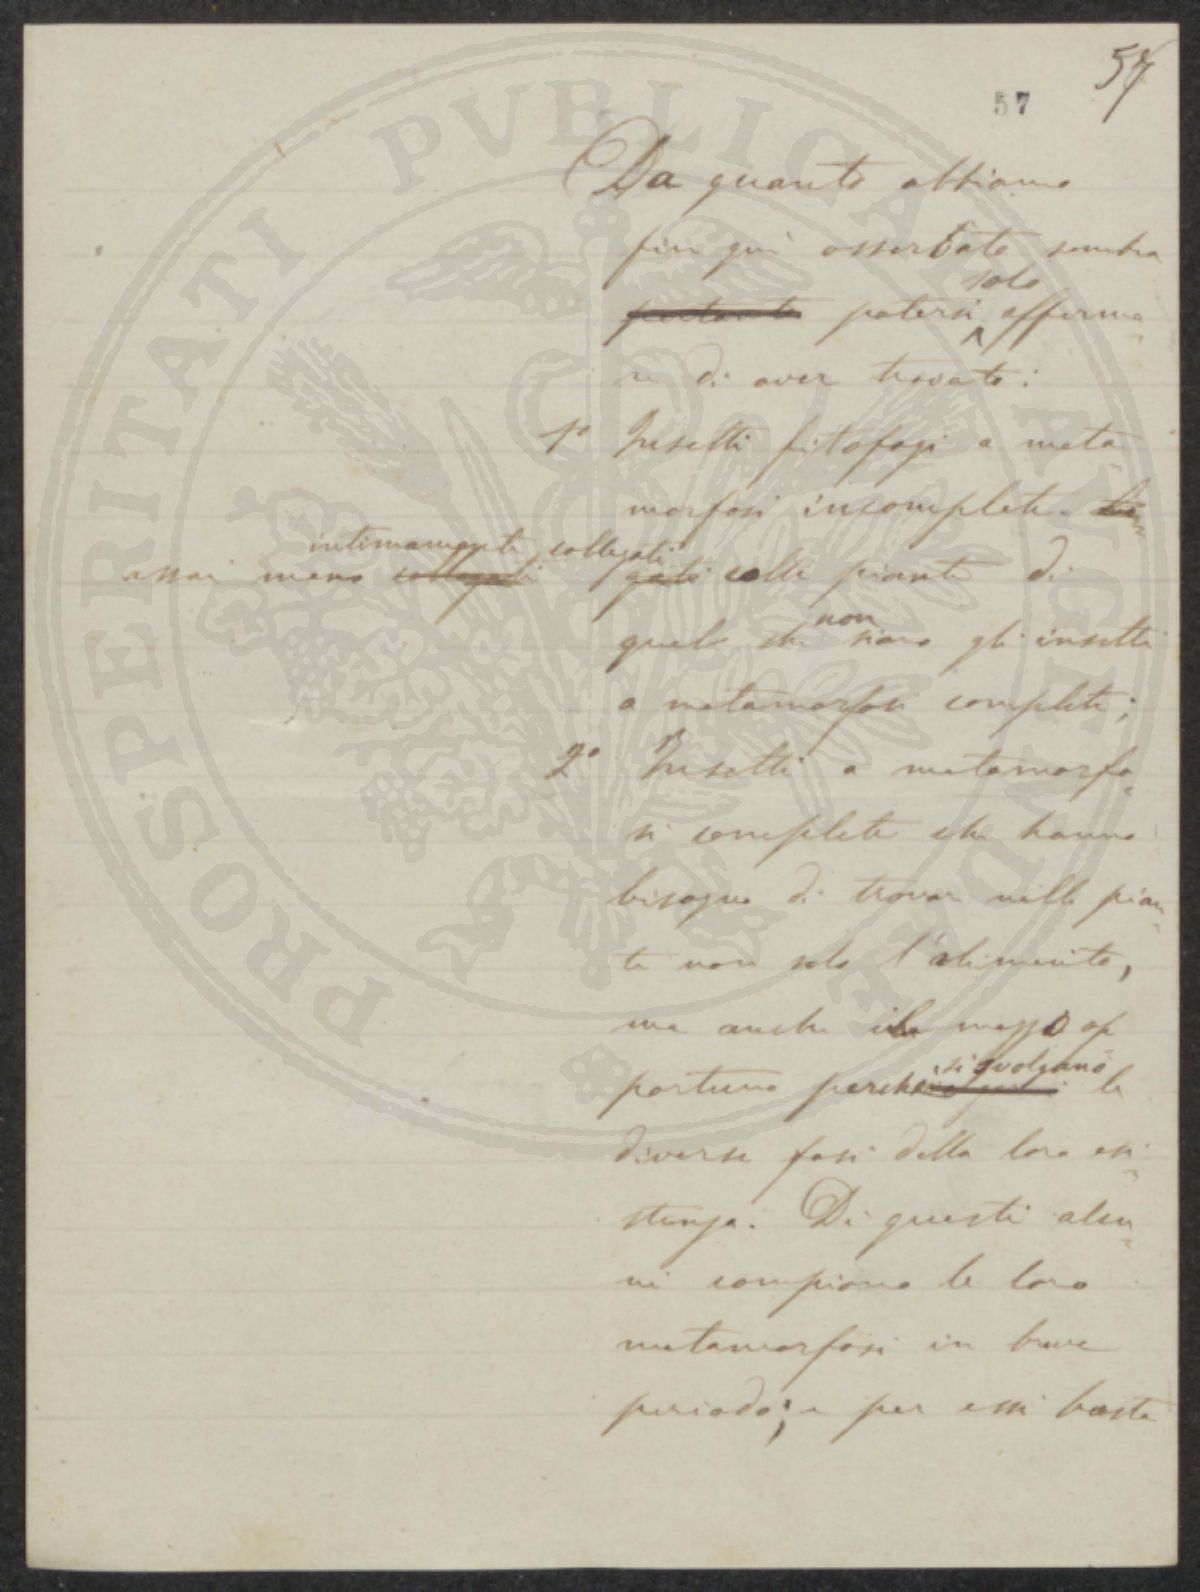 57
57
Da quanto abbiamo
fin qui osservato sembra
solo
pertanto potersi afferma-
re di aver trovato:
1º Insetti fitofagi a meta-
morfosi incomplete
intimamente collegati
assai meno collegati gati colle piante di
non
quelo che siano gli insetti
a metamorfosi complete;
2º Insetti a metamorfo-
si complete che hanno
bisogno di trovar nelle pian-
te non solo l'alimento,
ma anche il mezzo op
si svolgano
portuno perchè le
diverse fasi della loro esi-
stenza. Di questi alcu-
ni compiono le loro
metamorfosi in breve
periodo; e per essi basta
PROSPERITATI PVBLICAE AVGENDAE